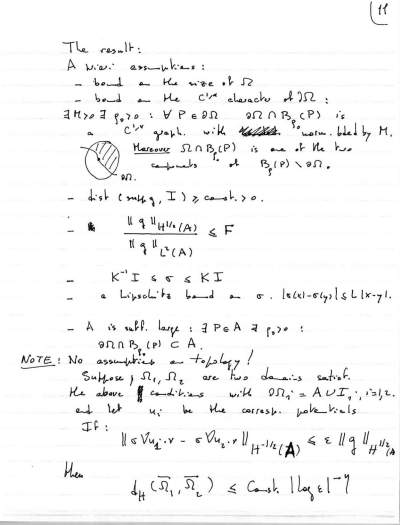 11
The result:
A priori assumptions:
- bound on the size of Ω
- bound on the C^{1,α} character of ∂Ω:
∃ M>0 ∃ ρ₀>0 : ∀ P ∈ ∂Ω ∂Ω ∩ B_{ρ₀}(P) is
a C^{1,α} graph with norm bded by M.
Moreover Ω ∩ B_{ρ₀}(P) is one of the two
components of B_{ρ₀}(P) \ ∂Ω.
∂Ω.
- dist (supp g, I) ≥ const. > 0.
- ‖g‖_{H^{1/2}(A)} / ‖g‖_{L²(A)} ≤ F
- K⁻¹ I ≤ σ ≤ K I
- a Lipschitz bound on σ. |σ(x)-σ(y)| ≤ L |x-y|.
- A is suff. large : ∃ P ∈ A ∃ ρ₀>0 :
∂Ω ∩ B_{ρ₀}(P) ⊂ A.
NOTE: No assumption on topology!
Suppose Ω₁, Ω₂ are two domains satisf.
the above conditions with ∂Ωᵢ = A ∪ Iᵢ, i=1,2.
and let uᵢ be the corresp. potentials
If:
‖σ∇u₁·ν - σ∇u₂·ν‖_{H^{-1/2}(A)} ≤ ε ‖g‖_{H^{1/2}(A)}
then
d_H(Ω̄₁, Ω̄₂) ≤ Const. |log ε|^{-η}